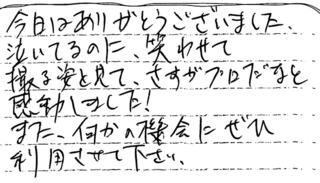 今日はありがとうございました、
泣いてるのに、笑わせて
撮る姿を見て、さすがプロだなと
感動しました!
また、何かの機会にぜひ
利用させて下さい。